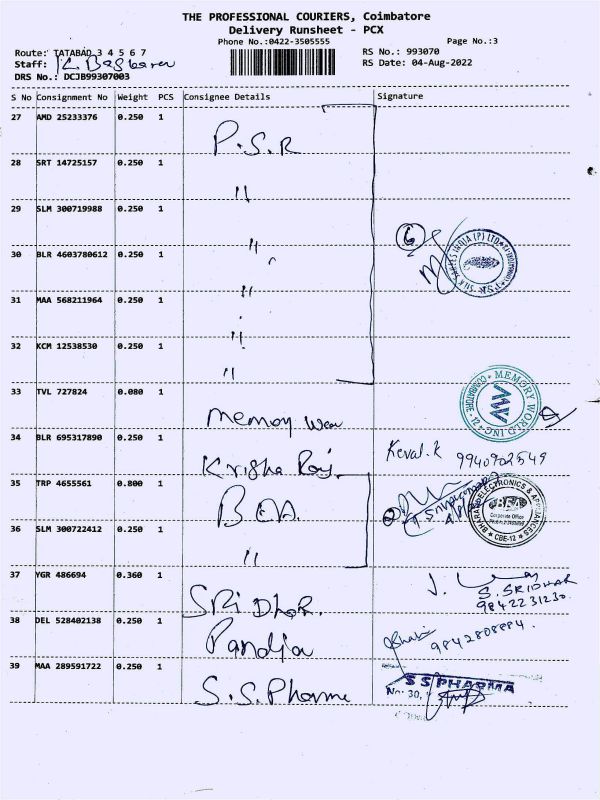 THE PROFESSIONAL COURIERS, Coimbatore
Delivery Runsheet - PCX
Phone No.:0422-3505555
Page No.:3
Route: TATABAD 3 4 5 6 7
RS No.: 993070
Staff: K. Baskaran
RS Date: 04-Aug-2022
DRS No.: DCJB99307003
S No Consignment No Weight PCS Consignee Details Signature
27 AMD 25233376 0.250 1 P.S.R
28 SRT 14725157 0.250 1 "
29 SLM 300719988 0.250 1 "
6
30 BLR 4603780612 0.250 1 "
31 MAA 568211964 0.250 1 "
32 KCM 12538530 0.250 1 "
33 TVL 727824 0.080 1 Memory
MEMORY WORLD INC
COIMBATORE - 12
34 BLR 695317890 0.250 1 Krisha Raj. Keval.K 9940902549
35 TRP 4655561 0.800 1 B.E.A.
BHARAT ELECTRONICS & APPLIANCES
BEA
Corporate Office
CBE-12
2
36 SLM 300722412 0.250 1 "
37 YGR 486694 0.360 1 SRiDhar. S. SRIDHAR
9842231230
38 DEL 528402138 0.250 1 Pandja 9842808884.
39 MAA 289591722 0.250 1 S.S. Pharma S S PHARMA
No: 30,